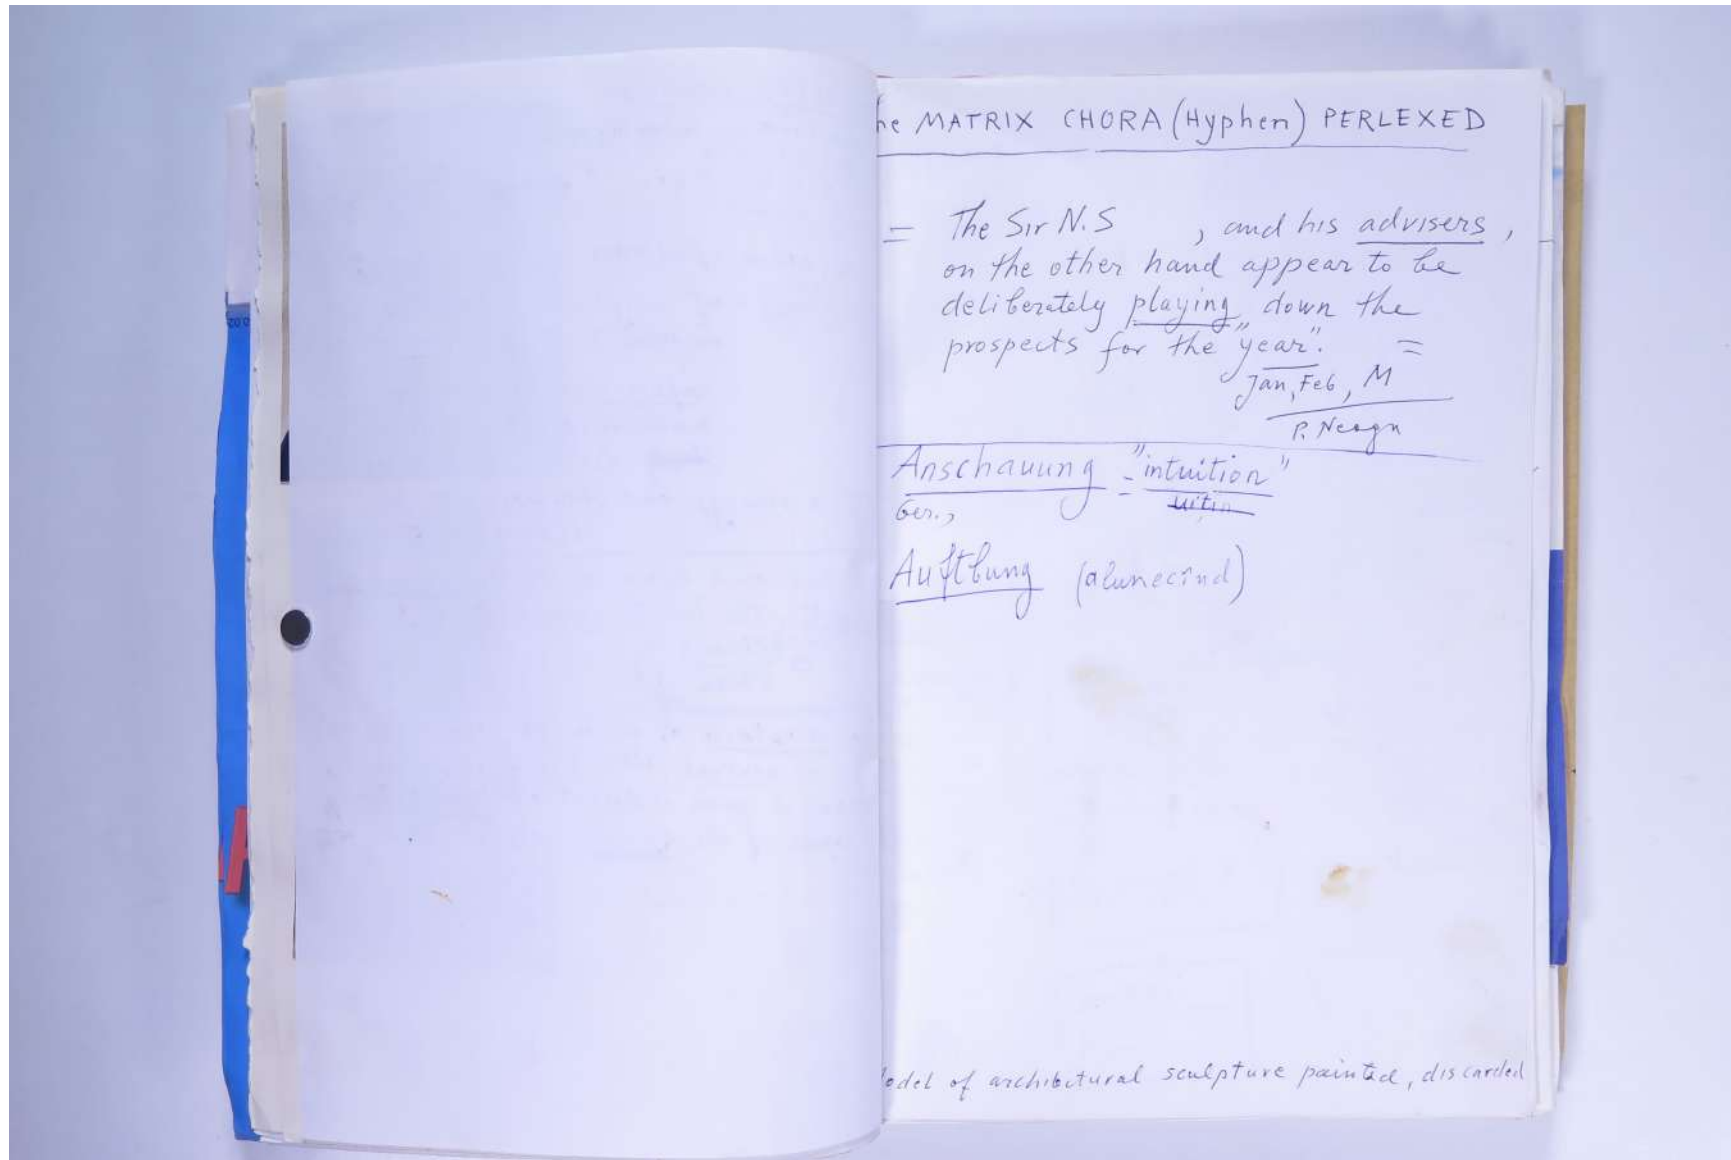 he MATRIX CHORA (Hyphen) PERLEXED
= The Sir N.S , and his advisers,
on the other hand appear to be
deliberately playing down the
prospects for the "year". =
Jan, Feb, M
P. Neagu
Anschauung = "intuition"
Ger.,
(alunecînd)
odel of architectural sculpture painted, discarded